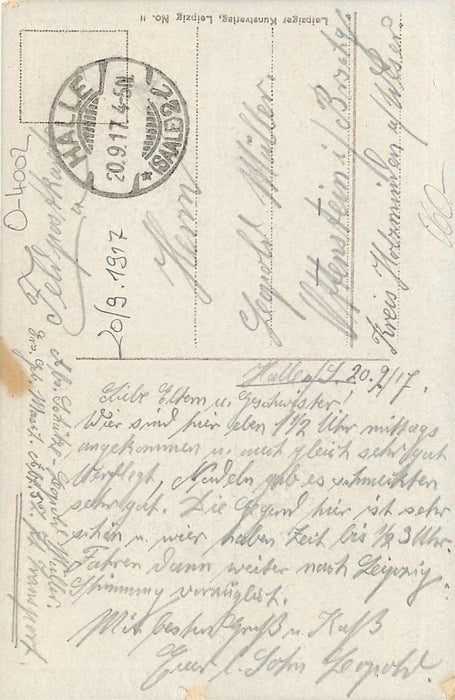 Leipziger Kunstverlag, Leipzig No. 11
HALLE
20.9.17. 4-5N.
* (SAALE) 2
O-4002
20/9.1917
Feldpostkarte
Herrn
Leopold Müller.
Ottenstein i/ Brschg.
Kreis Holzminden a/ Weser.
60-
Halle a/S. 20.9/17.
Liebe Eltern u. Geschwister!
Wir sind hier eben 1 1/2 Uhr mittags
angekommen u. auch gleich sehr gut
verpflegt, Nudeln gab es schmeckten
sehr gut. Die Gegend hier ist sehr
schön u. wir haben Zeit bis 1/2 3 Uhr.
Fahren dann weiter nach Leipzig.
Stimmung vorzüglich.
Mit bestem Gruß u. Kuß
Euer l. Sohn Leopold.
Abs. Leopold Müller